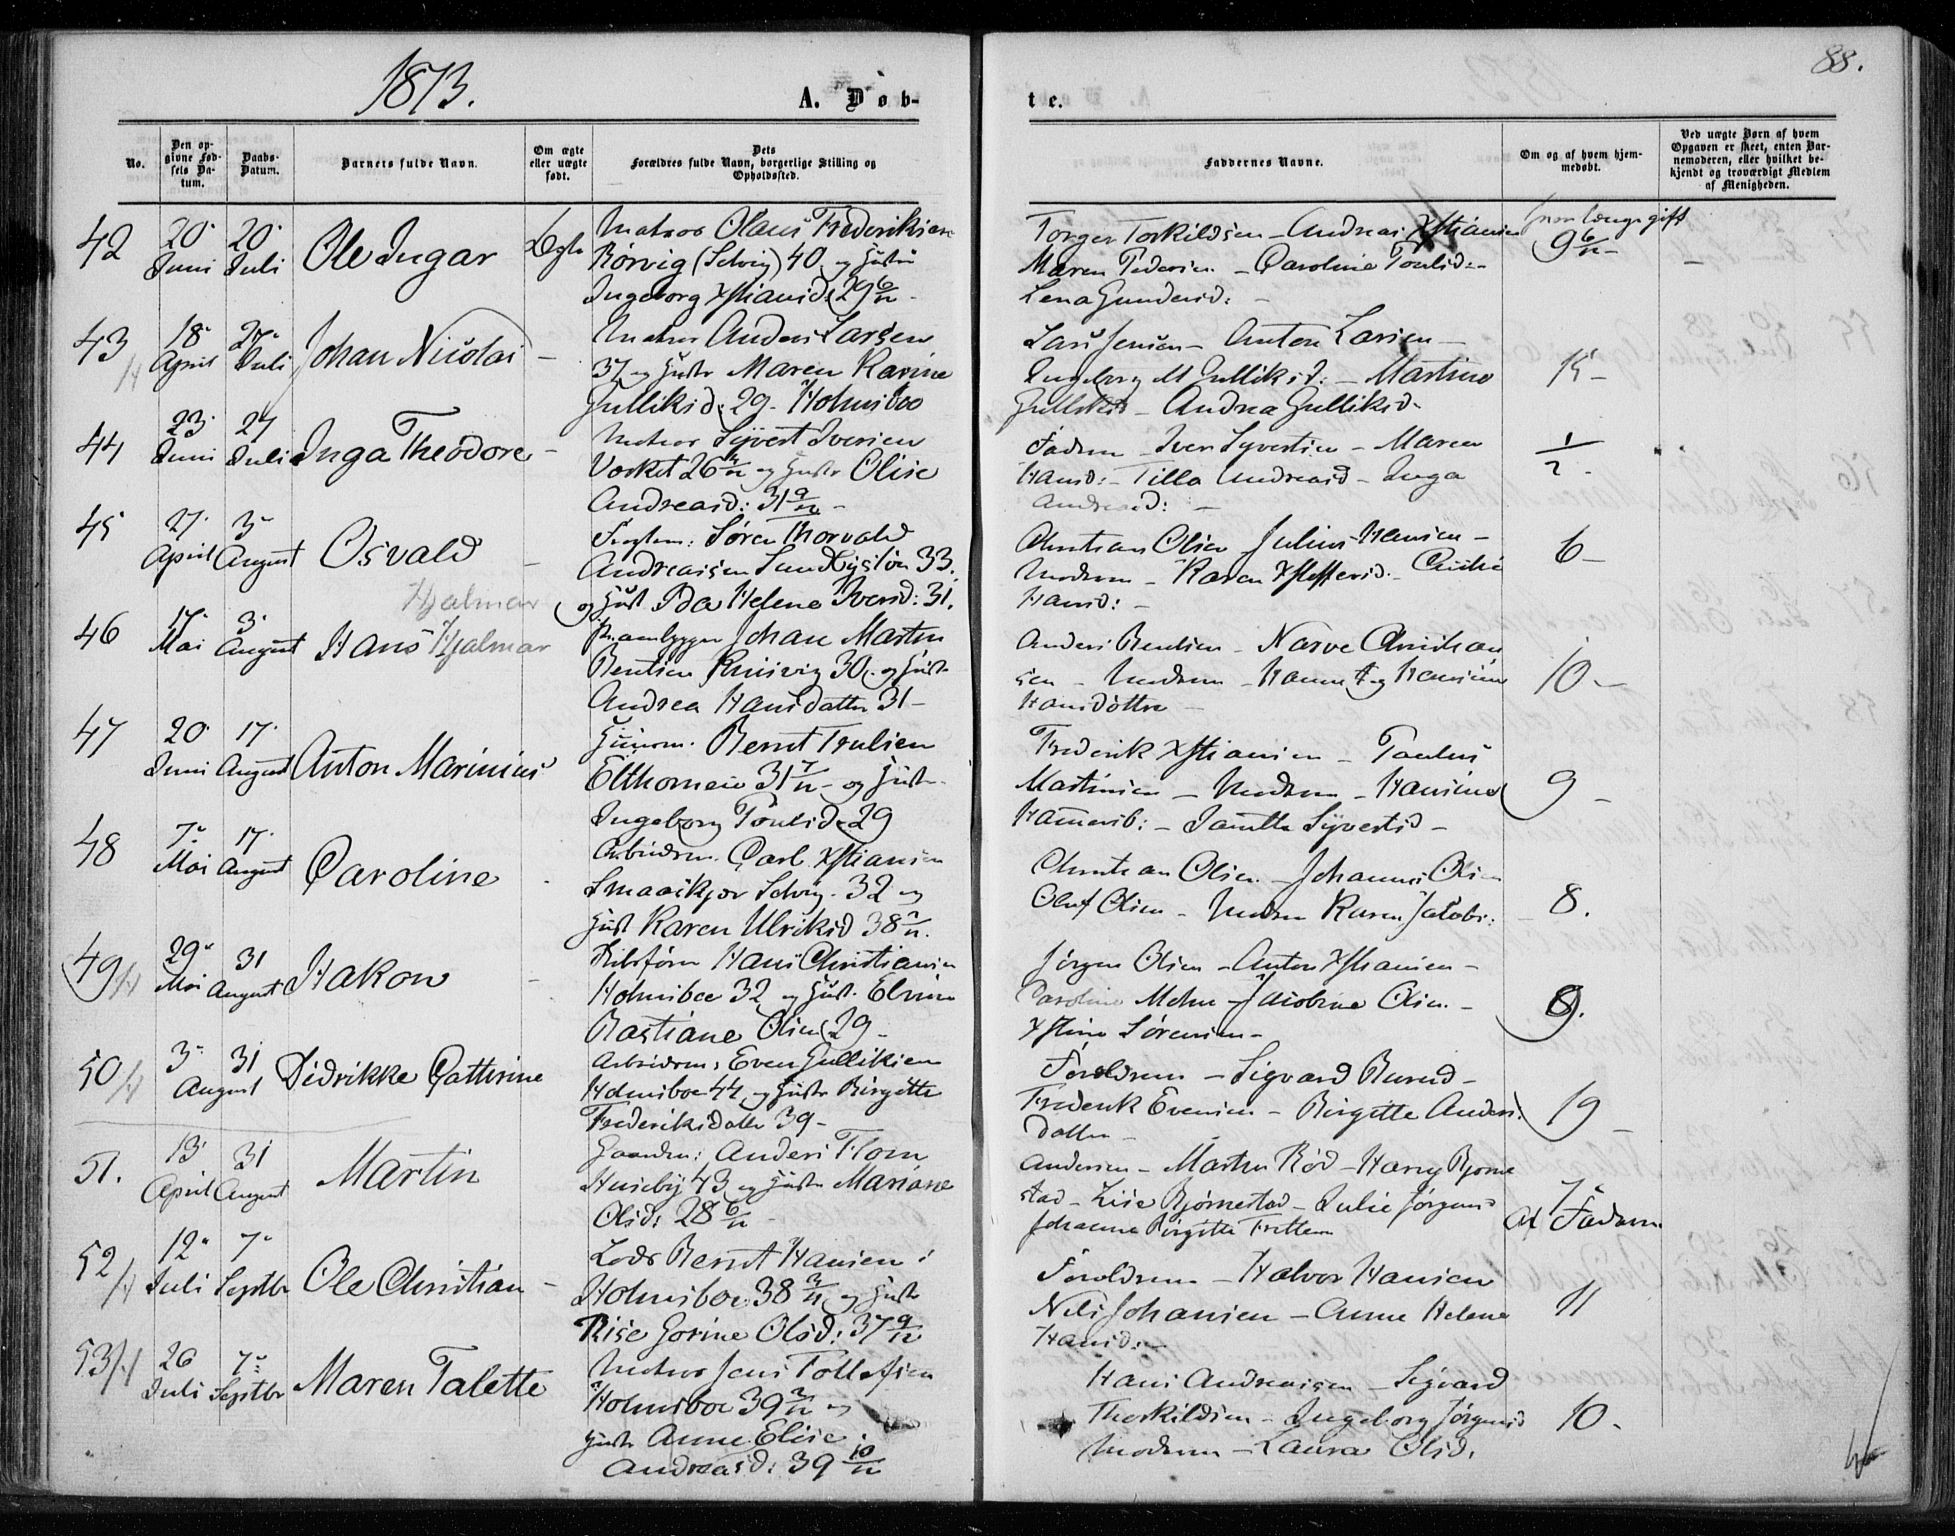 1873.
A. Døb-
te.
88.
No.
Den op-
givne Fød-
sels Da-
tum.
Daabs-
Datum.
Barnets fulde Navn.
Om ægte
eller uægte
født.
Dets
Forældres fulde Navn, borgerlige Stilling og
Opholdssted.
Faddernes Navne.
Om og af hvem hjem-
medøbt.
Ved uægte Børn af hvem
Opgaven er skeet, enten Bar-
nemoderen, eller hvilket be-
kjendt og troværdigt Medlem
af Menigheden.
42
20.
Juni
20.
Juli
Ole Ingar
Ægte
Matros Olaus Frederiksen
Rørvig (Selvig) 40 og Hustru
Ingeborg Xstiansd: 29 6/12 -
Torger Torkildsen - Andreas Xstiansen
Maren Pedersen - Caroline Tønlsd: -
Lena Gundersd: -
hvor længe gift
9 6/12 -
43
18.
April
27.
Juli
Johan Nicolai -
Matros Anders Larsen
37 og Hustr Maren Karine
Gulliksd: 29 - Holmsboe
Lars Jensen - Anton Larsen -
Ingeborg M Gulliksd: - Martine
Gulliksd - Andrea Gulliksd -
15 -
44
23.
Juni
27
Juli
Inga Theodore -
Matros Syvert Iversen
26 og Hustr Olise
Andreasd: 31 9/12 -
Fadern - Iver Syvertsen - Maren
Hansd: - Tilla Andreasd - Inga
Andreasd: -
1/2 -
45
27.
April
3.
August
Osvald -
Hjalmar
Søren Thorvald
Andreassen 33.
og Hust. Ida Helene Iversd: 31.
Christian Olsen Julius Hansen -
Modern - Karen Xstoffersd. -
Hansd: -
6 -
46
17.
Mai
3.
August
Hans Hjalmar
Johan Martin
Bentsen 30. og Hustr
Andrea Hansdatter 31 -
Anders Bentsen - Narve Christian
sen - Modern - Hanna og Hansine
Hansdøttre -
10 -
47
20.
Juni
17.
August
Anton Marinius
Husm. Bernt Trulsen
31 7/12 - og Hustr.
Ingeborg Tønlsd 29
Frederik Xstiansen - Paulus
Martinsen - Modern - Hansine
- Syvertsd -
9 -
48
7.
Mai
17.
August
Caroline -
Arbeidsm. Carl Xstiansen
Selvig. 32 og
Hust Karen Ulriksd 38
Christian Olsen - Johannes Olsen
Oluf Olsen - Modern Karen Jacobs:
8.
49
29.
Mai
31
August
Hakon -
Skibsfører Hans Christiansen
Holmsboe 32 og Hust. Elvine
Bastiane Olsen 29 -
Jørgen Olsen - Anton Xstiansen -
Caroline - Jacobine Olsen -
Xstine Sørensen -
9.
50
3.
31
August
Didrikke Cathrine
Arbeidsm: Even Gulliksen
Holmsboe 44 og Hustr Birgitte
Frederiksdatter 39 -
Forældrene - Sigvard -
Frederik Evensen - Birgitte Anders:
datter -
19 -
51.
13.
April
31
August
Martin
Gaardm: Anders
Huseby 43 og Hustr Mariane
Olsd: 28 6/12 -
Andersen - Martin Rød - Harry Bjørne
stad - Lise Bjørnestad - Julie Jørgens:
Johanne Birgitte
7.
Af Fadern
52
12.
Juli
7.
Septbr
Ole Christian -
Lods Bernt Hansen i
Holmsboe 38 og Hustr
Gorine Olsd: 37 9/12
Forældrene - Halvor Hansen
Nils Johansen - Anne Helene
Hansd: -
11
53
26
Juli
7.
Septbr
Maren Talette
Matros Jens Tollefsen
Holmsboe 39 3/12 og
Hustr Anne Elise
Andreasd: 39 10/12
Hans Andreassen - Sigvard
Thorkildsen - Ingeborg Jørgensd
Modern - Laura Olsd.
10 -